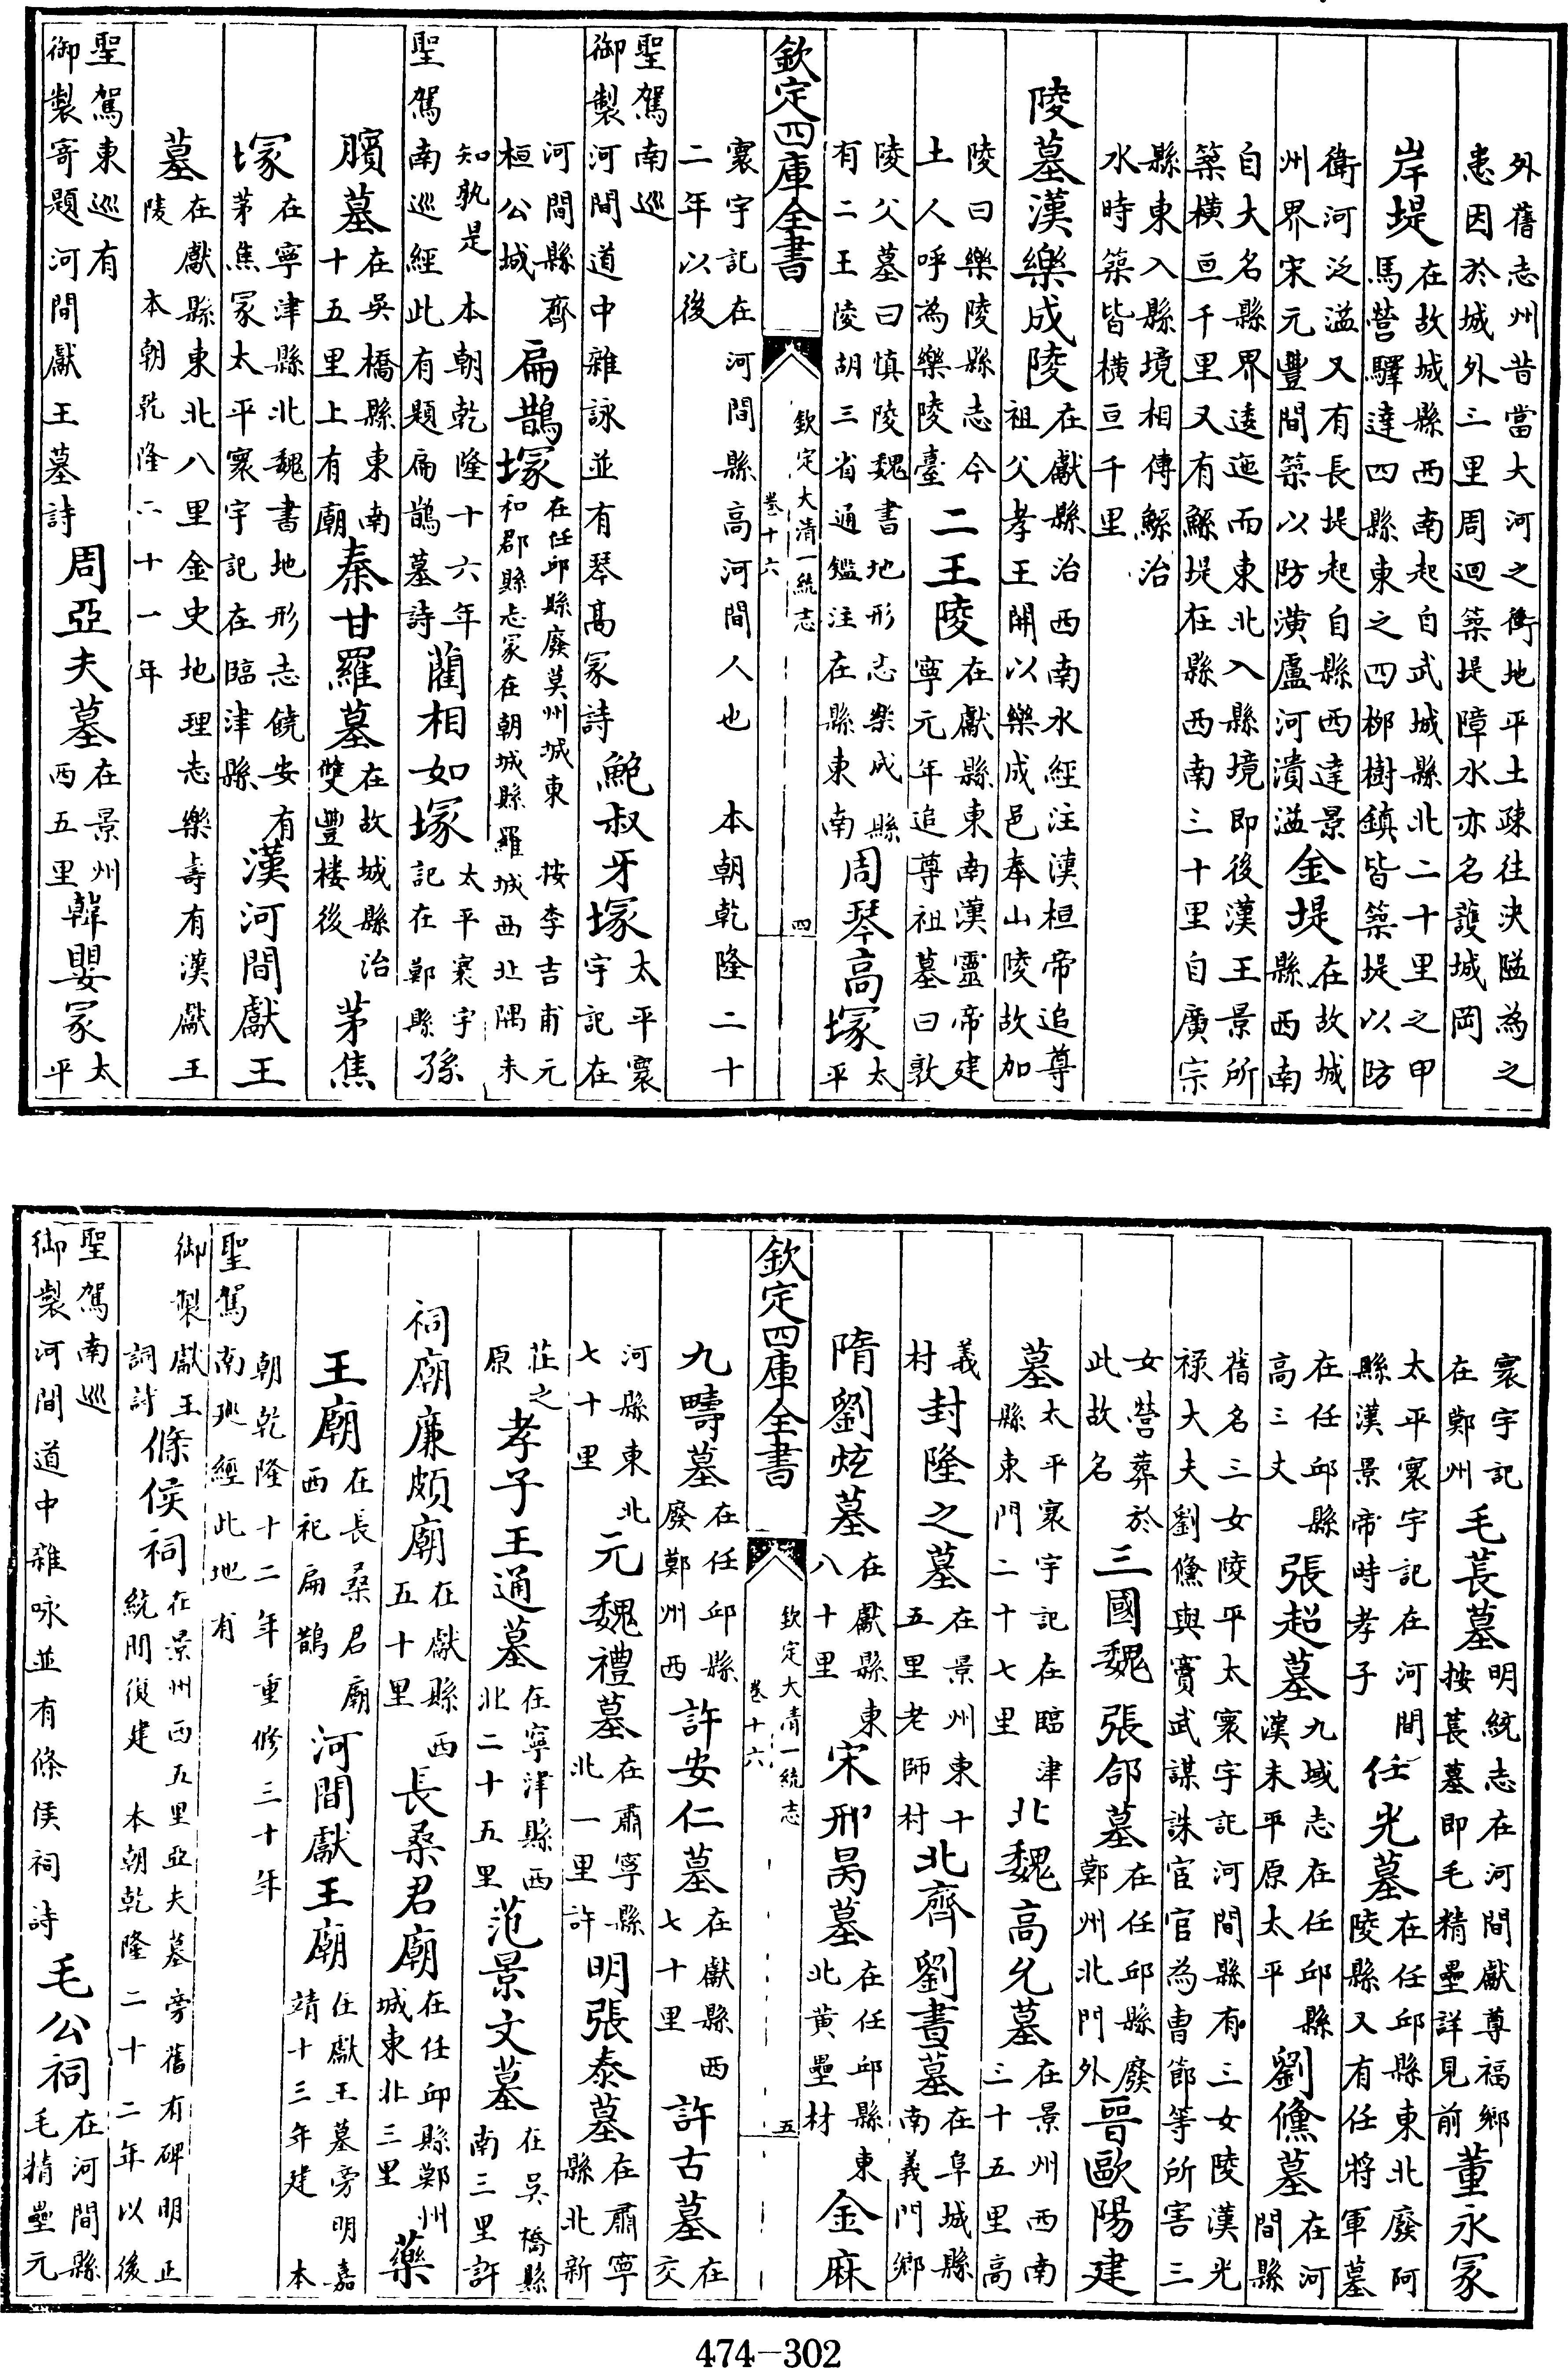 外舊志州昔當大河之衝地平土疎往決隘為之
患因於城外三里周迴築堤障水亦名護城岡
岸堤在故城縣西南起自武城縣北二十里之甲
馬營驛達四縣東之四栁樹鎮皆築堤以防
衛河泛溢又有長堤起自縣西達景
州界宋元豐間築以防潢盧河潰溢金堤在故城縣西南
自大名縣界逶迤而東北入縣境即後漢王景所
築横亘千里又有鯀堤在縣西南三十里自廣宗
縣東入縣境相傳鯀治
水時築皆横亘千里
陵墓漢樂成陵在獻縣治西南水經注漢桓帝追尊
祖父孝王開以樂成邑奉山陵故加
陵曰樂陵縣志今
土人呼為樂陵臺二王陵在獻縣東南漢靈帝建
寧元年追尊祖墓曰敦
陵父墓曰慎陵魏書地形志樂成縣
有二王陵胡三省通鑑注在縣東南周琴高塚太平
欽定四庫全書
欽定大清一統志
卷十六
四
寰宇記在河間縣高河間人也 本朝乾隆二十
二年以後
聖駕南巡
御製河間道中雜詠並有琴髙冢詩鮑叔牙塚太平寰宇記在
河間縣齊
桓公城扁鵲塚在任邱縣廢莫州城東 按李吉甫元
和郡縣志冢在朝城縣羅城西北隅未
知孰是 本朝乾隆十六年
聖駕南巡經此有題扁鵲墓詩藺相如塚太平寰宇記在鄚縣孫
臏墓在吳橋縣東南十五里上有廟秦甘羅墓在故城縣治雙豐楼後茅焦
塚在寧津縣北魏書地形志饒安有
茅焦冢太平寰宇記在臨津縣漢河間獻王
墓在獻縣東北八里金史地理志樂壽有漢獻王
陵 本朝乾隆二十一年
聖駕東巡有
御製寄題河間獻王墓詩周亞夫墓在景州西五里韓嬰冢太平
寰宇記
在鄚州毛萇墓明統志在河間獻尊福鄉
按萇墓即毛精壘詳見前董永冢
太平寰宇記在河間
縣漢景帝時孝子任光墓在任邱縣東北廢阿
陵縣又有任將軍墓
在任邱縣
高三丈張超墓九域志在任邱縣
漢末平原太平劉儵墓在河間縣
舊名三女陵平太寰宇記河間縣有三女陵漢光
禄大夫劉儵與竇武謀誅宦官為曹節等所害三
女營葬於
此故名三國魏張郃墓在任邱縣廢
鄚州北門外晉歐陽建
墓太平寰宇記在臨津
縣東門二十七里北魏高允墓在景州西南
三十五里高
義
村封隆之墓在景州東十
五里老師村北齊劉晝墓在阜城縣
南義門鄉
隋劉炫墓在獻縣東
八十里宋邢昺墓在任邱縣東
北黄壘材金麻
欽定四庫全書
欽定大清一統志
卷十六
五
九疇墓在任邱縣
廢鄚州西許安仁墓在獻縣西
七十里許古墓在交
河縣東北
七十里元魏禮墓在肅寧縣
北一里許明張泰墓在肅寧
縣北新
莊之
原孝子王通墓在寧津縣西
北二十五里范景文墓在吳橋縣
南三里許
祠廟廉頗廟在獻縣西
五十里長桑君廟在任邱縣鄚州
城東北三里藥
王廟在長桑君廟
西祀扁鵲河間獻王廟在獻王墓旁明嘉
靖十三年建 本
朝乾隆十二年重修三十年
聖駕南巡經此地有
御製獻王
詞詩條侯祠在景州西五里亞夫墓旁舊有碑明正
統間復建 本朝乾隆二十二年以後
聖駕南巡
御製河間道中雜咏並有條侯祠詩毛公祠在河間縣
毛精壘元
474-302